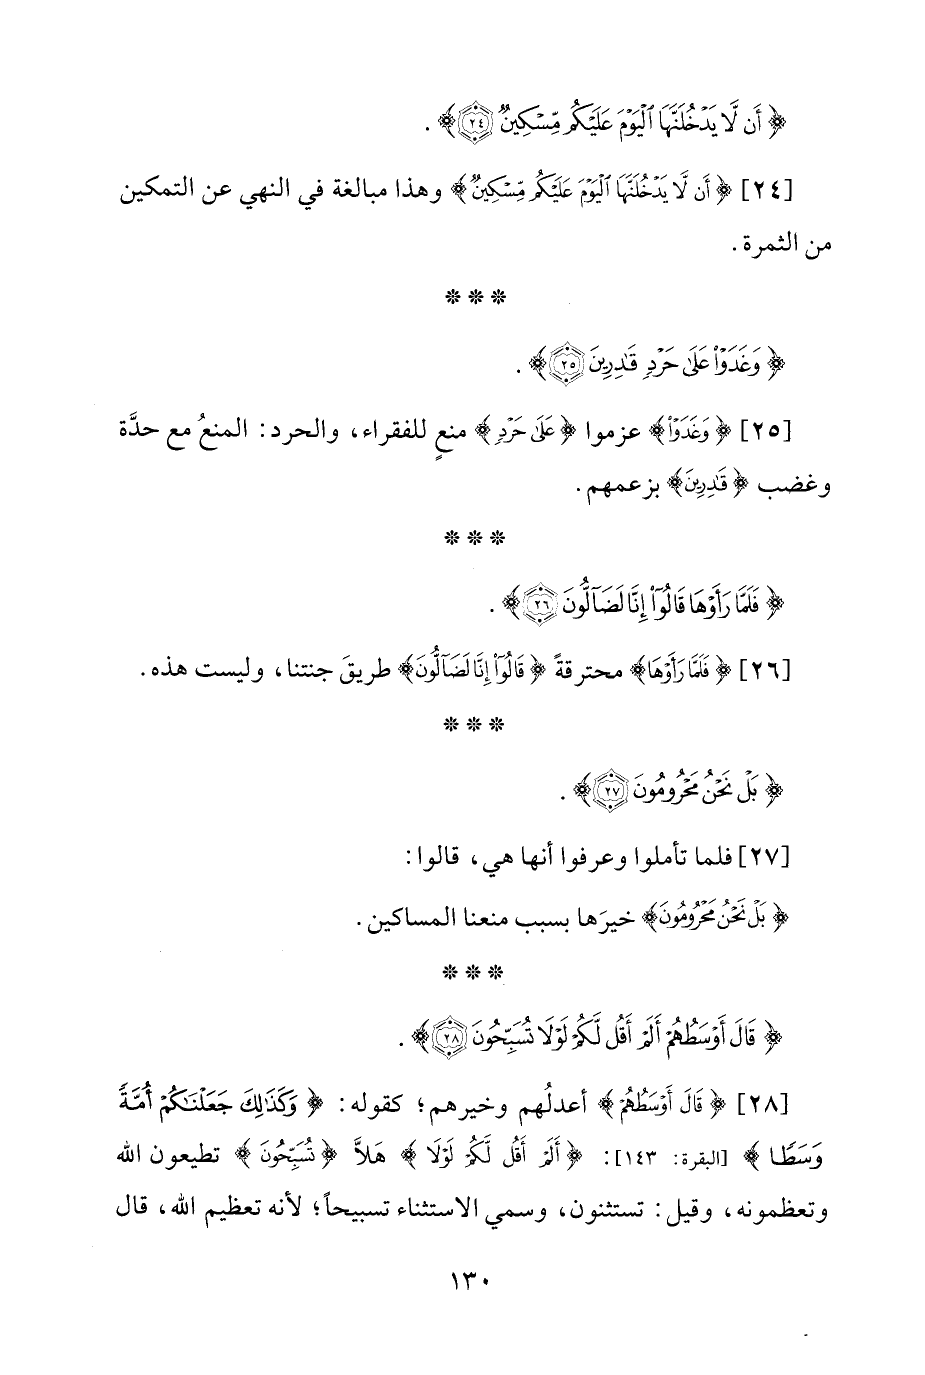 ﴿ أَن لَّا يَدْخُلَنَّهَا الْيَوْمَ عَلَيْكُم مِّسْكِينٌ ٢٤ ﴾ .
[٢٤] ﴿ أَن لَّا يَدْخُلَنَّهَا الْيَوْمَ عَلَيْكُم مِّسْكِينٌ ﴾ وهذا مبالغة في النهي عن التمكين
من الثمرة .
* * *
﴿ وَغَدَوْا عَلَىٰ حَرْدٍ قَادِرِينَ ٢٥ ﴾ .
[٢٥] ﴿ وَغَدَوْا ﴾ عزموا ﴿ عَلَىٰ حَرْدٍ ﴾ منعٍ للفقراء، والحرد: المنعُ مع حدَّة
وغضب ﴿ قَادِرِينَ ﴾ بزعمهم .
* * *
﴿ فَلَمَّا رَأَوْهَا قَالُوٓا إِنَّا لَضَآلُّونَ ٢٦ ﴾ .
[٢٦] ﴿ فَلَمَّا رَأَوْهَا ﴾ محترقةً ﴿ قَالُوٓا إِنَّا لَضَآلُّونَ ﴾ طريقَ جنتنا، وليست هذه .
* * *
﴿ بَلْ نَحْنُ مَحْرُومُونَ ٢٧ ﴾ .
[٢٧] فلما تأملوا وعرفوا أنها هي، قالوا:
﴿ بَلْ نَحْنُ مَحْرُومُونَ ﴾ خيرَها بسبب منعنا المساكين .
* * *
﴿ قَالَ أَوْسَطُهُمْ أَلَمْ أَقُل لَّكُمْ لَوْلَا تُسَبِّحُونَ ٢٨ ﴾ .
[٢٨] ﴿ قَالَ أَوْسَطُهُمْ ﴾ أعدلُهم وخيرهم؛ كقوله: ﴿ وَكَذَٰلِكَ جَعَلْنَاكُمْ أُمَّةً
وَسَطًا ﴾ [البقرة: ١٤٣]: ﴿ أَلَمْ أَقُل لَّكُمْ لَوْلَا ﴾ هَلاَّ ﴿ تُسَبِّحُونَ ﴾ تطيعون الله
وتعظمونه، وقيل: تستثنون، وسمي الاستثناء تسبيحاً؛ لأنه تعظيم الله، قال
١٣٠